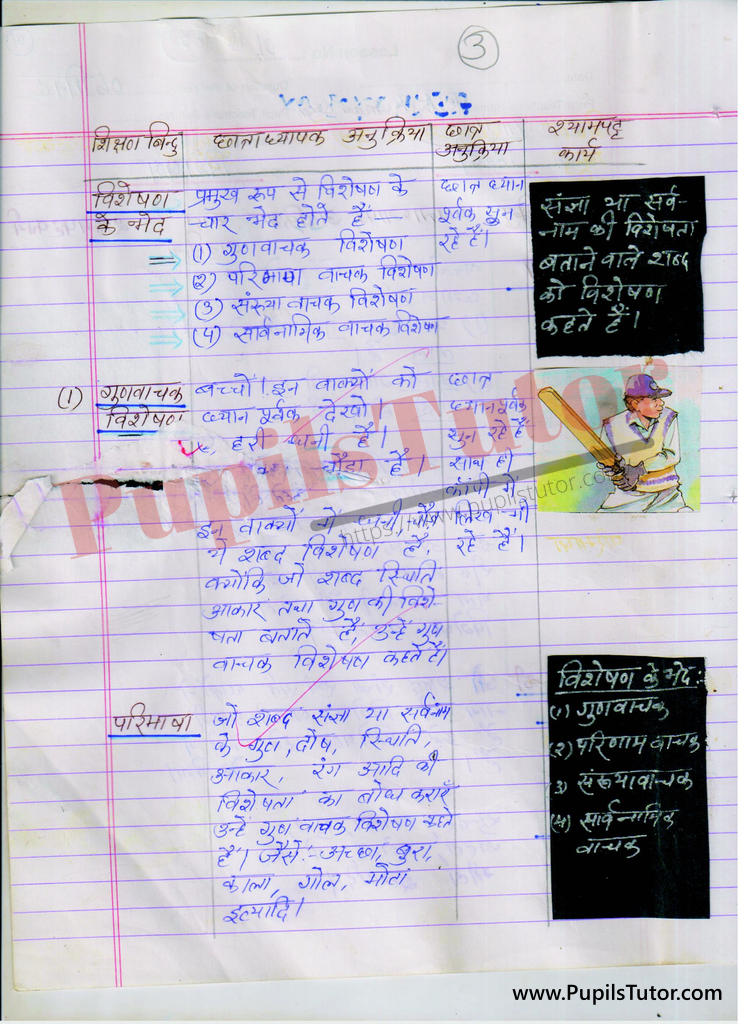 3
शिक्षण बिन्दु
छात्राध्यापक अनुक्रिया
छात्र
अनुक्रिया
श्यामपट्ट
कार्य
विशेषण
के भेद
प्रमुख रूप से विशेषण के
चार भेद होते हैं
(1) गुणवाचक विशेषण
(2) परिमाण वाचक विशेषण
(3) संख्यावाचक विशेषण
(4) सार्वनामिक वाचक विशेषण
छात्र ध्यान
पूर्वक सुन
रहे हैं।
संज्ञा या सर्व-
नाम की विशेषता
बताने वाले शब्द
को विशेषण
कहते हैं।
(1) गुणवाचक
विशेषण
बच्चों! इन वाक्यों को
ध्यान पूर्वक देखो।
चौड़ा है।
इन वाक्यों में
ये शब्द विशेषण हैं,
क्योंकि जो शब्द स्थिति
आकार तथा गुण की विशे-
षता बताते हैं, उन्हें गुण
वाचक विशेषण कहते हैं।
छात्र
ध्यानपूर्वक
सुन रहे हैं
साथ ही
कॉपी में
लिख भी
रहे हैं।
PupilsTutor
https://www.pupilstutor.com
परिभाषा
जो शब्द संज्ञा या सर्वनाम
के गुण, दोष, स्थिति,
आकार, रंग आदि की
विशेषता का बोध कराएँ
उन्हें गुण वाचक विशेषण कहते
हैं। जैसे:- अच्छा, बुरा,
काला, गोल, मोटा
इत्यादि।
विशेषण के भेद:-
(1) गुणवाचक
(2) परिणाम वाचक
(3) संख्यावाचक
(4) सार्वनामिक
वाचक
www.PupilsTutor.com